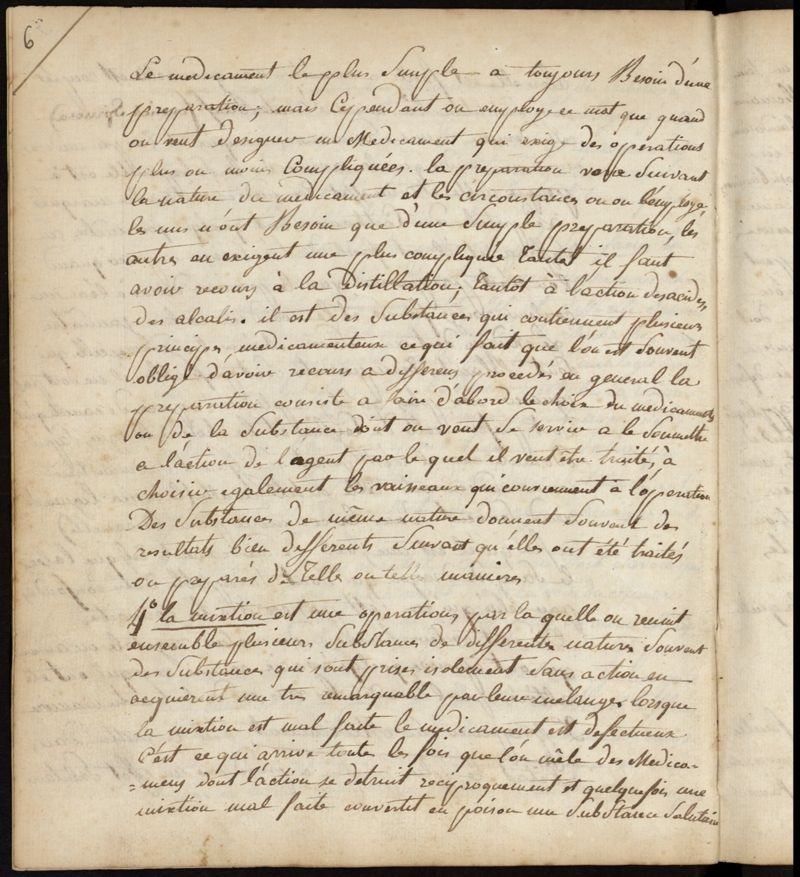 6
Le medicament le plus simple a toujours Besoin d'une
preparation; mais cependant on employe ce mot que quand
on veut designer un Medicament qui exige des operations
plus ou moins Compliquées. la preparation varie suivant
la nature du medicament et les circonstances ou on l'employe,
les uns n'ont Besoin que d'une simple preparation, les
autres en exigent une plus complique Tantot il faut
avoir recours à la Distillation; Tantôt à l'action des acides,
des alcalis. il est des Substances qui contiennent plusieurs
principes medicamenteux ce qui fait que l'on est souvent
obligé d'avoir recours a differens procedés en general la
preparation consiste a faire d'abord le choix du medicament
ou de la substance dont on veut se servir a le soumettre
a l'action de l'agent par le quel il veut etre traités, à
choisir egalement les vaisseaux qui conviennent a l'operation
Des Substances de même nature donnent souvent des
resultats bien differents suivant qu'elles ont été traités
ou preparés de Telles ou telles manieres
4° la mixtion est une operations par la quelle on reunit
ensemble plusieurs Substances de differentes natures souvent
des substances qui sont prises isolement sans action en
acquierent une tres remarquable par leurs melanges lorsque
la mixtion est mal faite le medicament est defectueux
C'est ce qui arrive toute les fois que l'on mêle des Medica-
=mens dont l'action se detruit reciproquement et quelque fois une
mixtion mal faite convertit en poison une Substance Salutaire